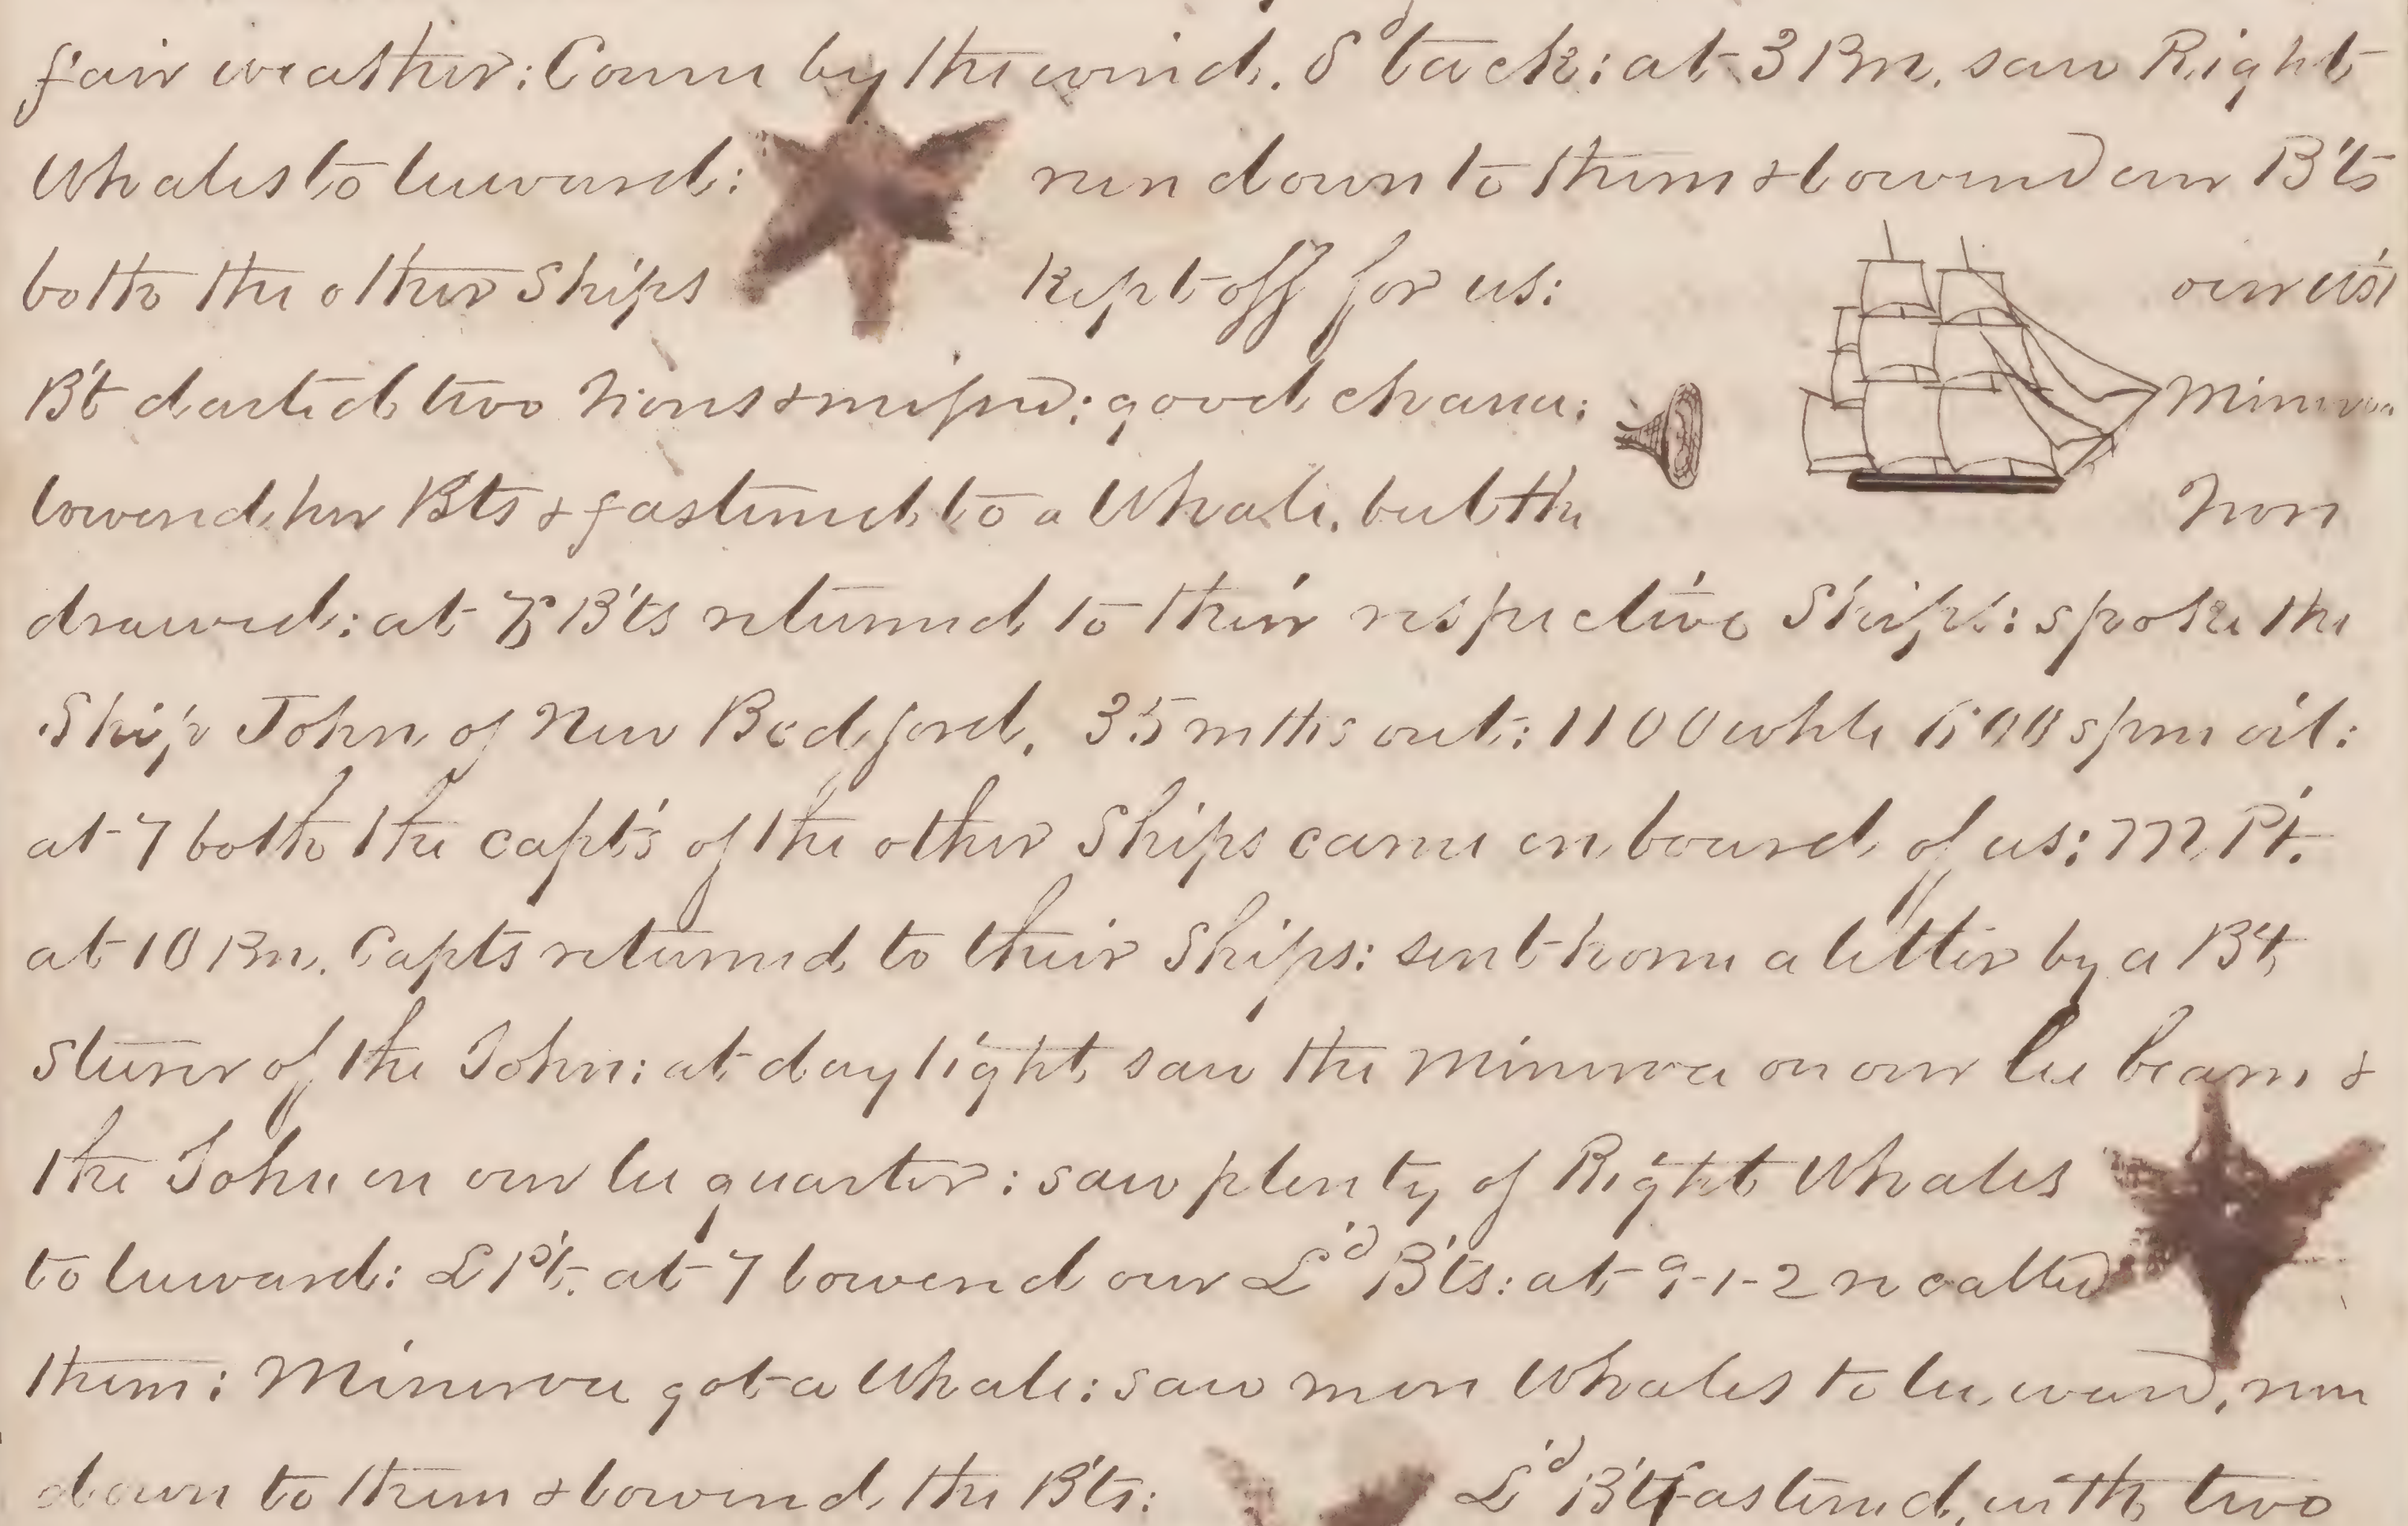 fair weather: Came by the wind. S^d tack: at 3 Pm. saw Right
Whales to leeward: run down to them & lowered our B'ts
both the other Ships kept off for us: our
B't darted two Irons & missed: good chance: Minerva
lowered her B'ts & fastened to a Whale, but the Iron
drawed: at B'ts returned to their respective Ships: spoke the
Ship John of New Bedford, 35 mths out: 1100 whle 600 spm oil:
at 7 both the capt's of the other Ships came on board of us: M P't.
at 10 Pm. Capts returned to their Ships: sent home a letter by a B't
sterer of the John: at daylight saw the Minerva on our lee beam &
the John on our lee quarter: saw plenty of Right Whales
to leeward: L P't. at 7 lowered our L'd B'ts: at 9-1-2 recalled
them: Minerva got a Whale: saw more Whales to leeward, run
down to them & lowered the B'ts: L'd B't fastened, with two